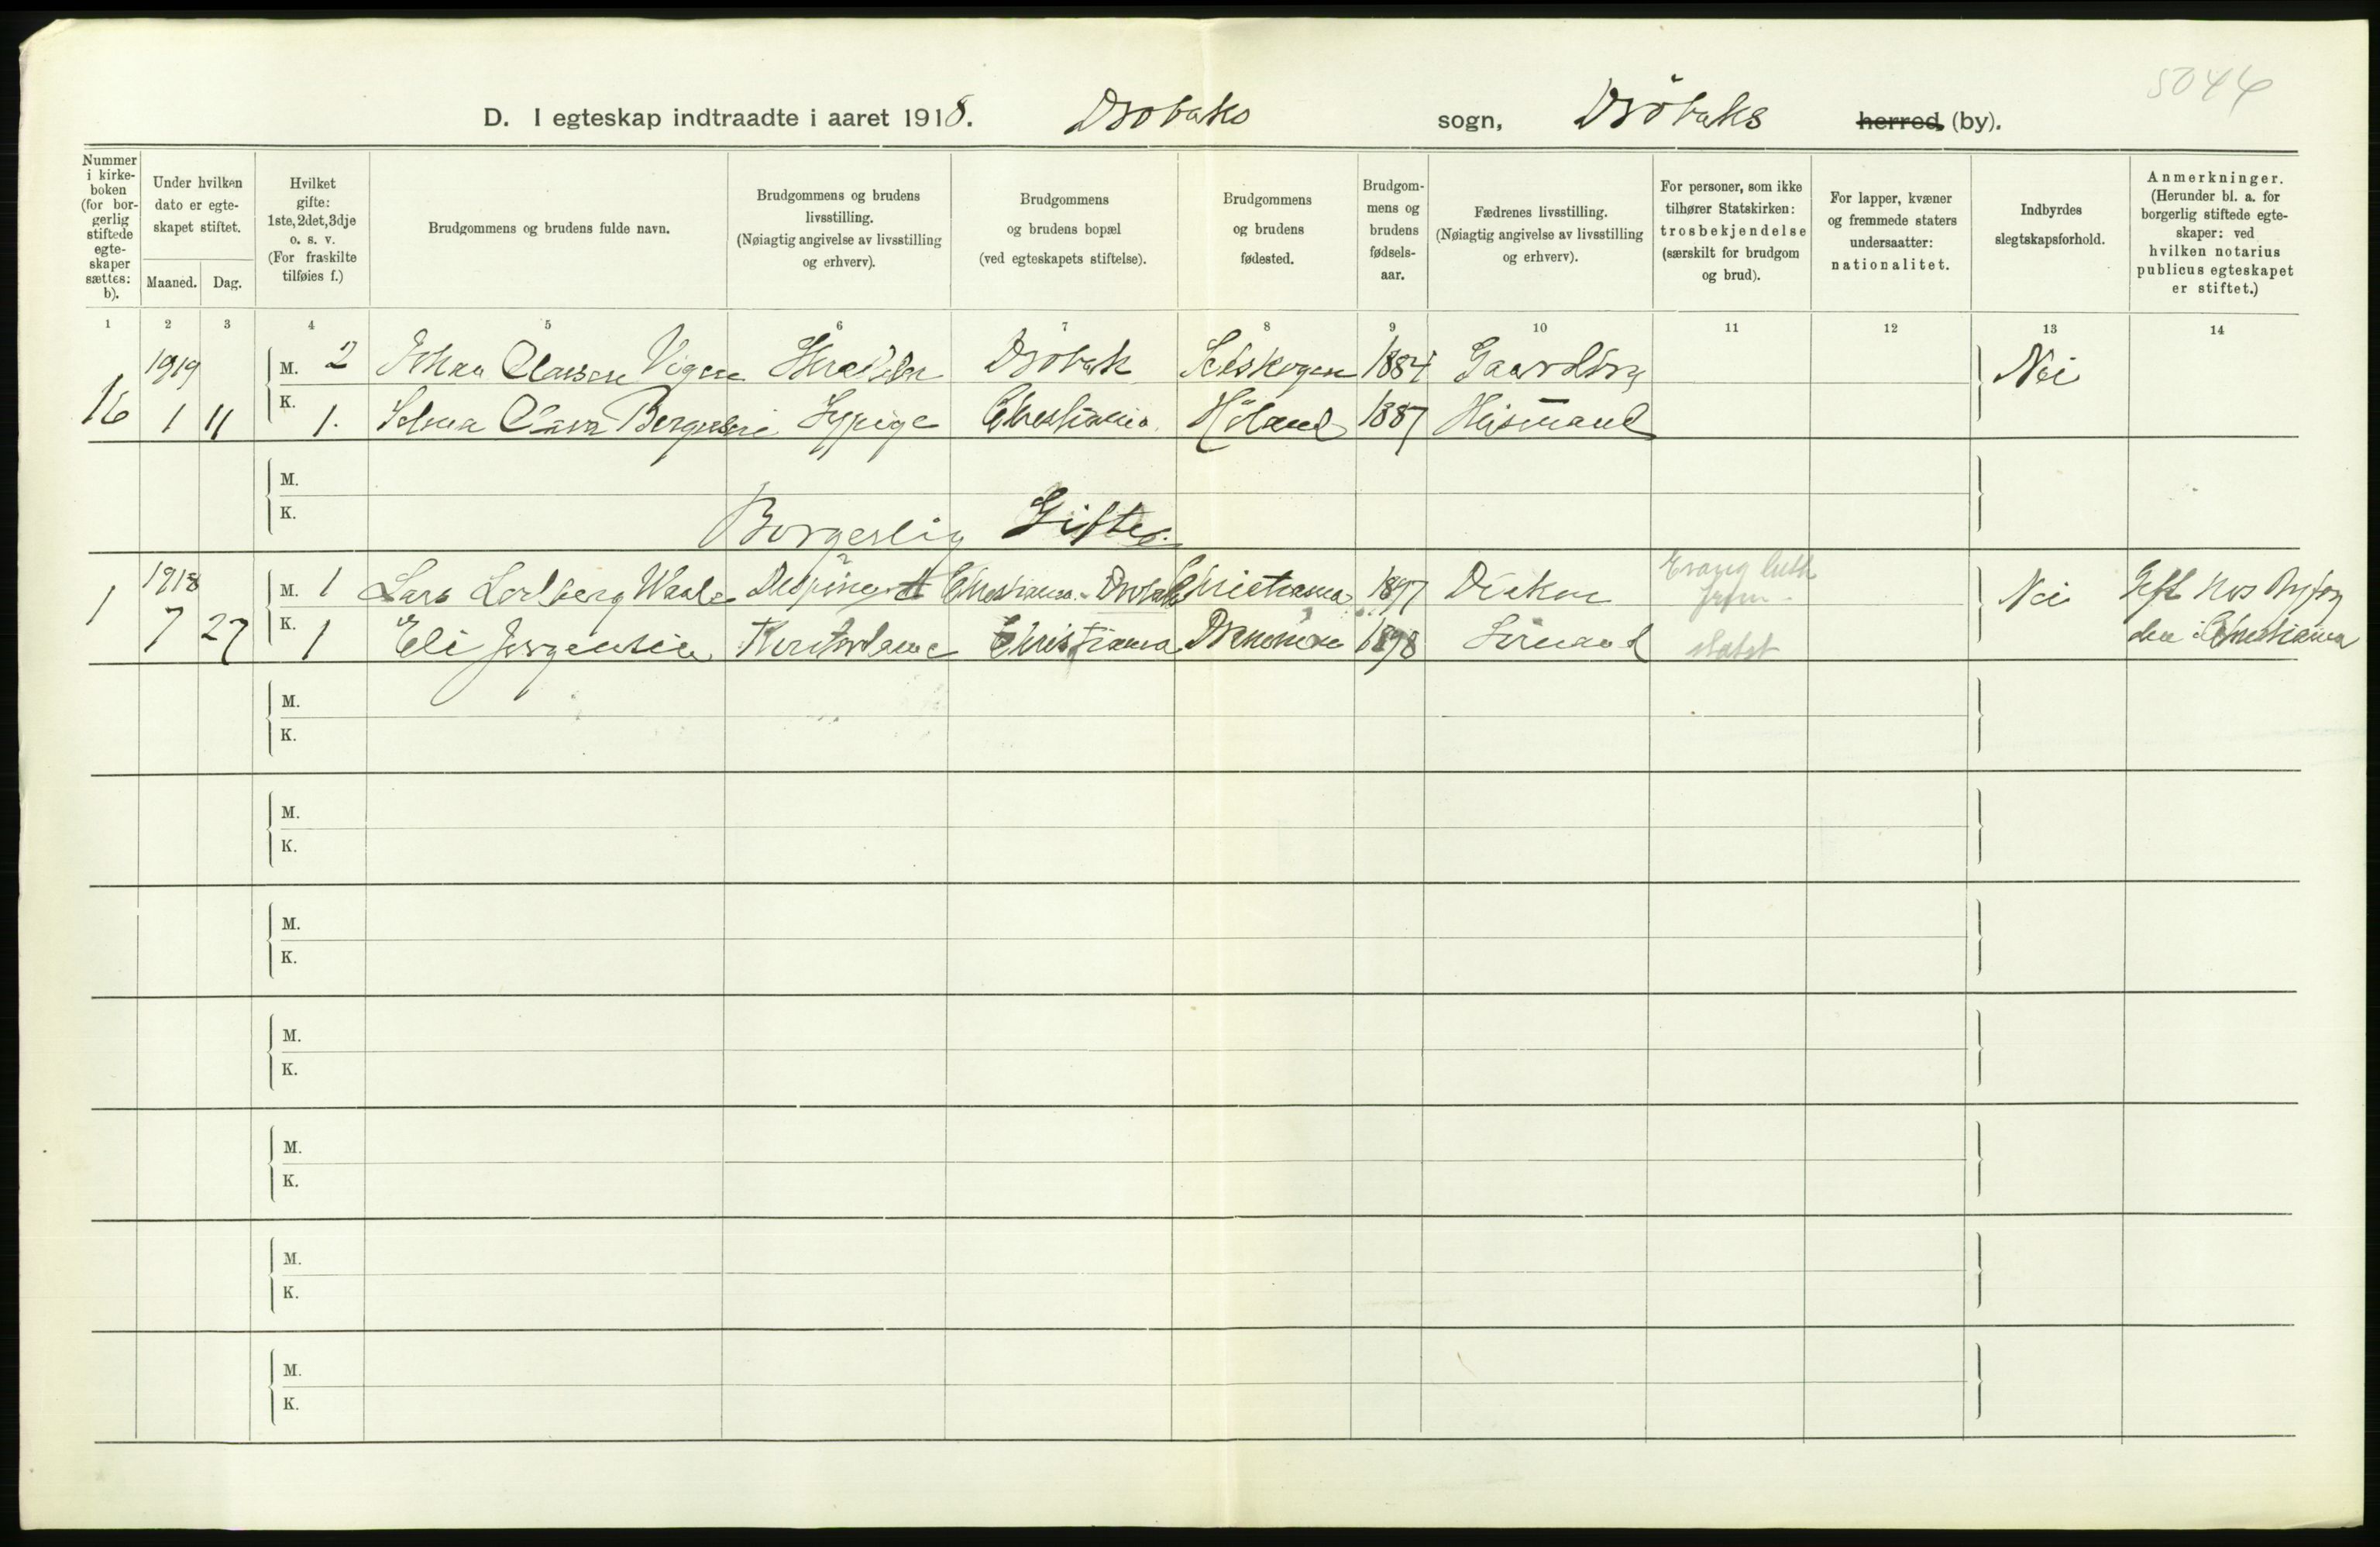 5044
D. I egteskap indtraadte i aaret 1918. Drøbaks sogn, Drøbaks herred, (by).
Nummer i kirke-boken (for bor-gerlig stiftede egte-skaper sættes: b).
Under hvilken dato er egte-skapet stiftet.
Maaned. Dag.
Hvilket gifte: 1ste, 2det, 3dje o. s. v. (For fraskilte tilføies f.)
Brudgommens og brudens fulde navn.
Brudgommens og brudens livsstilling. (Nøiagtig angivelse av livsstilling og erhverv).
Brudgommens og brudens bopæl (ved egteskapets stiftelse).
Brudgommens og brudens fødested.
Brudgom-mens og brudens fødsels-aar.
Fædrenes livsstilling. (Nøiagtig angivelse av livsstilling og erhverv).
For personer, som ikke tilhører Statskirken: trosbekjendelse (særskilt for brudgom og brud).
For lapper, kvæner og fremmede staters undersaatter: nationalitet.
Indbyrdes slegtskapsforhold.
Anmerkninger. (Herunder bl. a. for borgerlig stiftede egte-skaper: ved hvilken notarius publicus egteskapet er stiftet.)
1 2 3 4 5 6 7 8 9 10 11 12 13 14
1919 M. 2 Johan Olausen Drøbak 1884 Nei
16 1 11 K. 1. Selma Clara Christiania Høland 1887 Husmand
M.
K.
Borgerlig Gifte.
1 1918 M. 1 Lars Waale Christiania - Drøbak Christiania 1897 Evang luth Nei Gift hos Byfog
7 27 K. 1 Eli Jørgensen Kontordame Christiania Drammen 1898 Sømand statsk den i Christiania
M.
K.
M.
K.
M.
K.
M.
K.
M.
K.
M.
K.
M.
K.